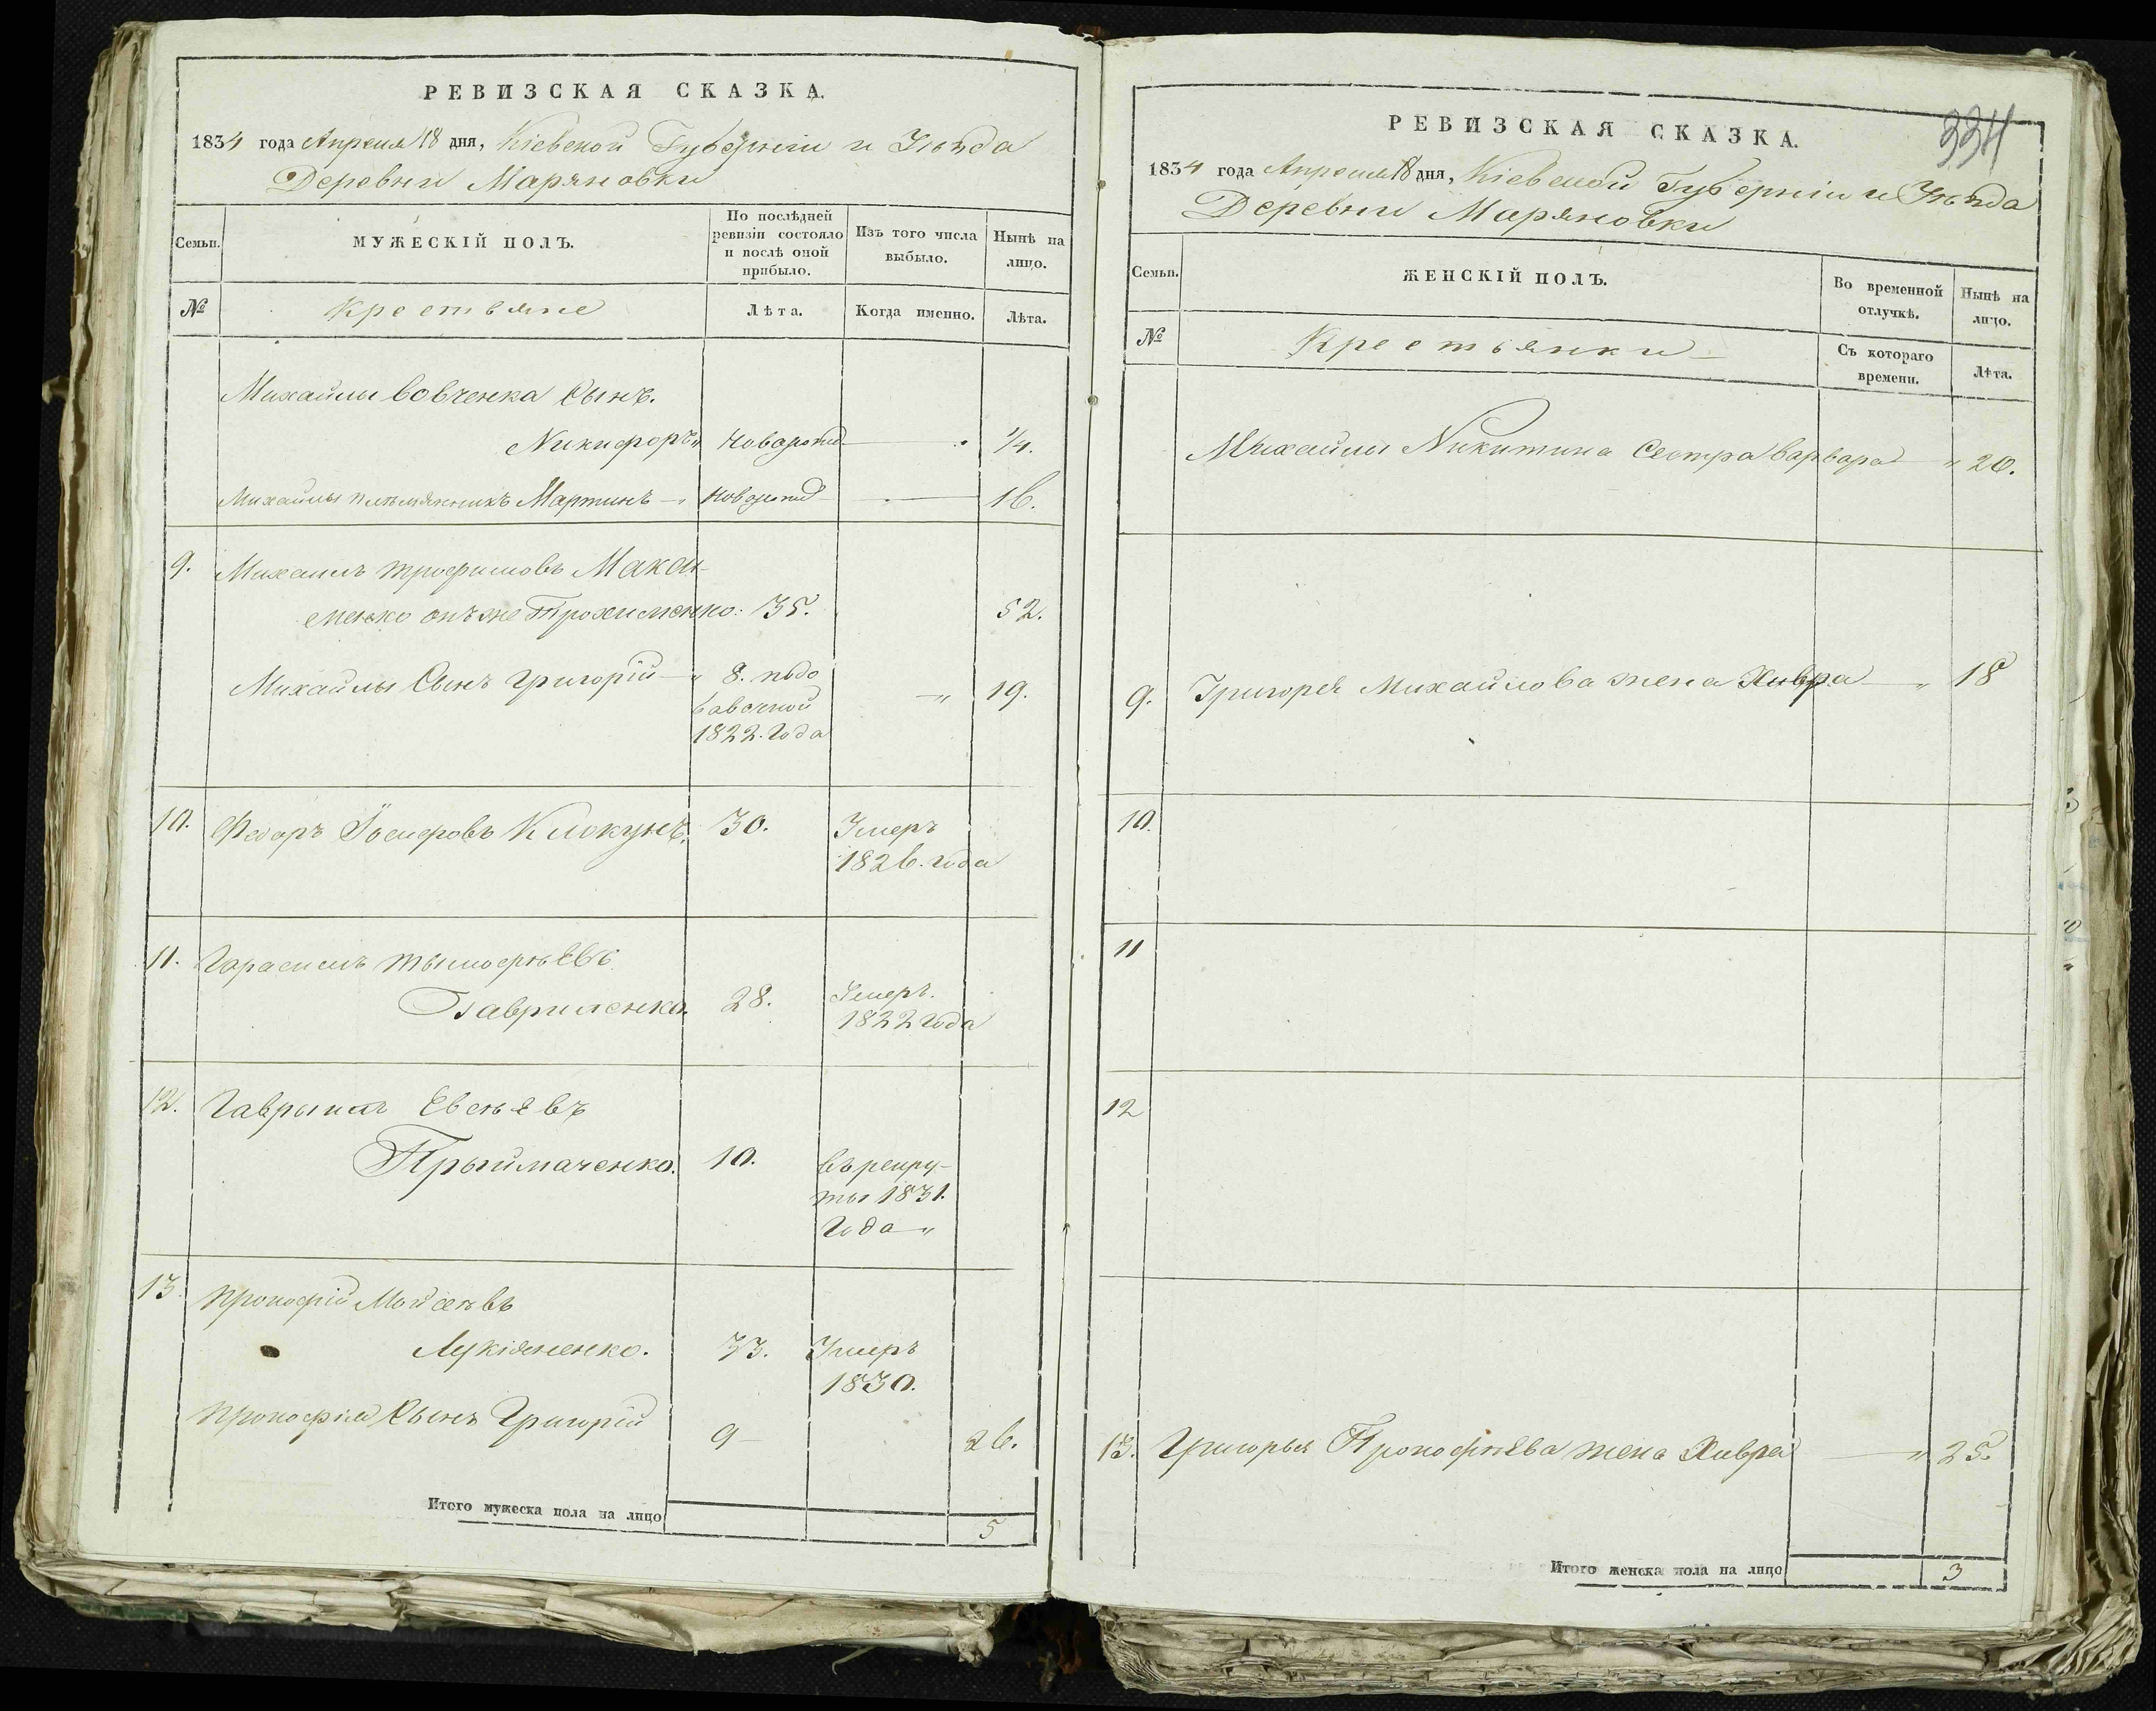 РЕВИЗСКАЯ СКАЗКА.
1834 года Апреля 18 дня, Кіевской Губерніи и Уѣзда
Деревни Маряновки
Семьи.
МУЖЕСКІЙ ПОЛЪ.
По послѣдней ревизіи состояло и послѣ оной прибыло.
Изъ того числа выбыло.
Нынѣ на лицо.
№
Крестьяне
Лѣта.
Когда именно.
Лѣта.
Михайлы Вовченка Сынъ.
Никифоръ " новорожд 1/4.
Михайлы племянникъ Мартинъ — " новорожд 16.
9. Михаилъ Трофимовъ Макси-
менко онъ же Трохименко: 35. 52.
Михайлы Сынъ Григорій — " 8. по до — " 19.
бавочной
1822. Года
10. Федоръ Іосифовъ Клокунъ. 30. Умеръ
1826. года
11. Гарасимъ Тымофѣевъ
Гавриленко. 28. Умеръ.
1822 Года
12. Гаврыилъ Евсѣевъ
Прыймаченко. 10. Въ рекру-
ты 1831.
Года "
13. Прокофій Мойсеѣвъ
Лукіяненко. 33. Умеръ
1830.
Прокофія Сынъ Григорій 9 — 26.
Итого мужеска пола на лицо 5
РЕВИЗСКАЯ СКАЗКА.
334
1834 года Апреля 18 дня, Кіевской Губерніи и Уѣзда
Деревни Маряновки
Семьи.
ЖЕНСКІЙ ПОЛЪ.
Во временной отлучкѣ.
Нынѣ на лицо.
№
Крестьянки
Съ котораго времени.
Лѣта.
Михайлы Никитина Сестра Варвара " 20.
9. Григорія Михайлова жена Хивра — " 18
10.
11
12
13. Григорья Прокофѣева жена Хивра — " 25.
Итого женска пола на лицо 3